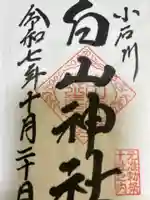 小石川
白山神社
令和七年十月二十日